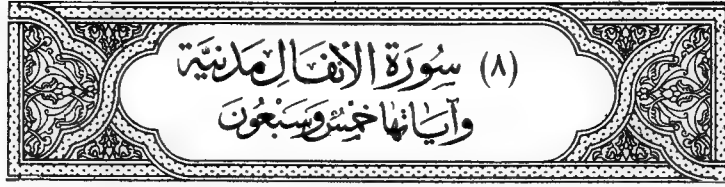 (٨) سُورَةُ الْأَنْفَالِ مَدَنِيَّة
وَآيَاتُهَا خَمْسٌ وَسَبْعُونَ